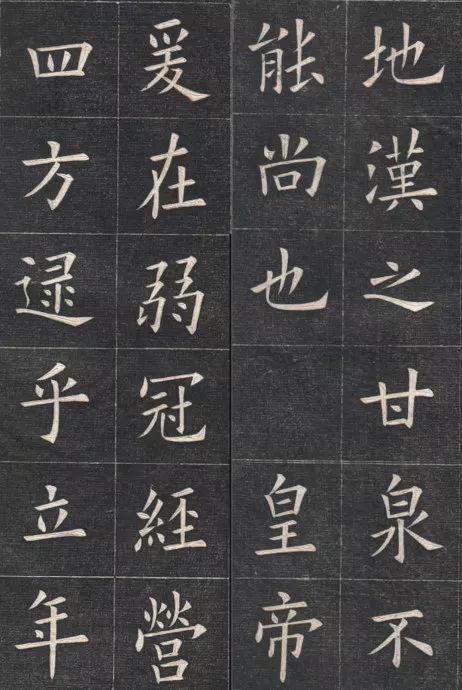 地漢之甘泉不
能尚也 皇帝
爰在弱冠經營
四方逮乎立年